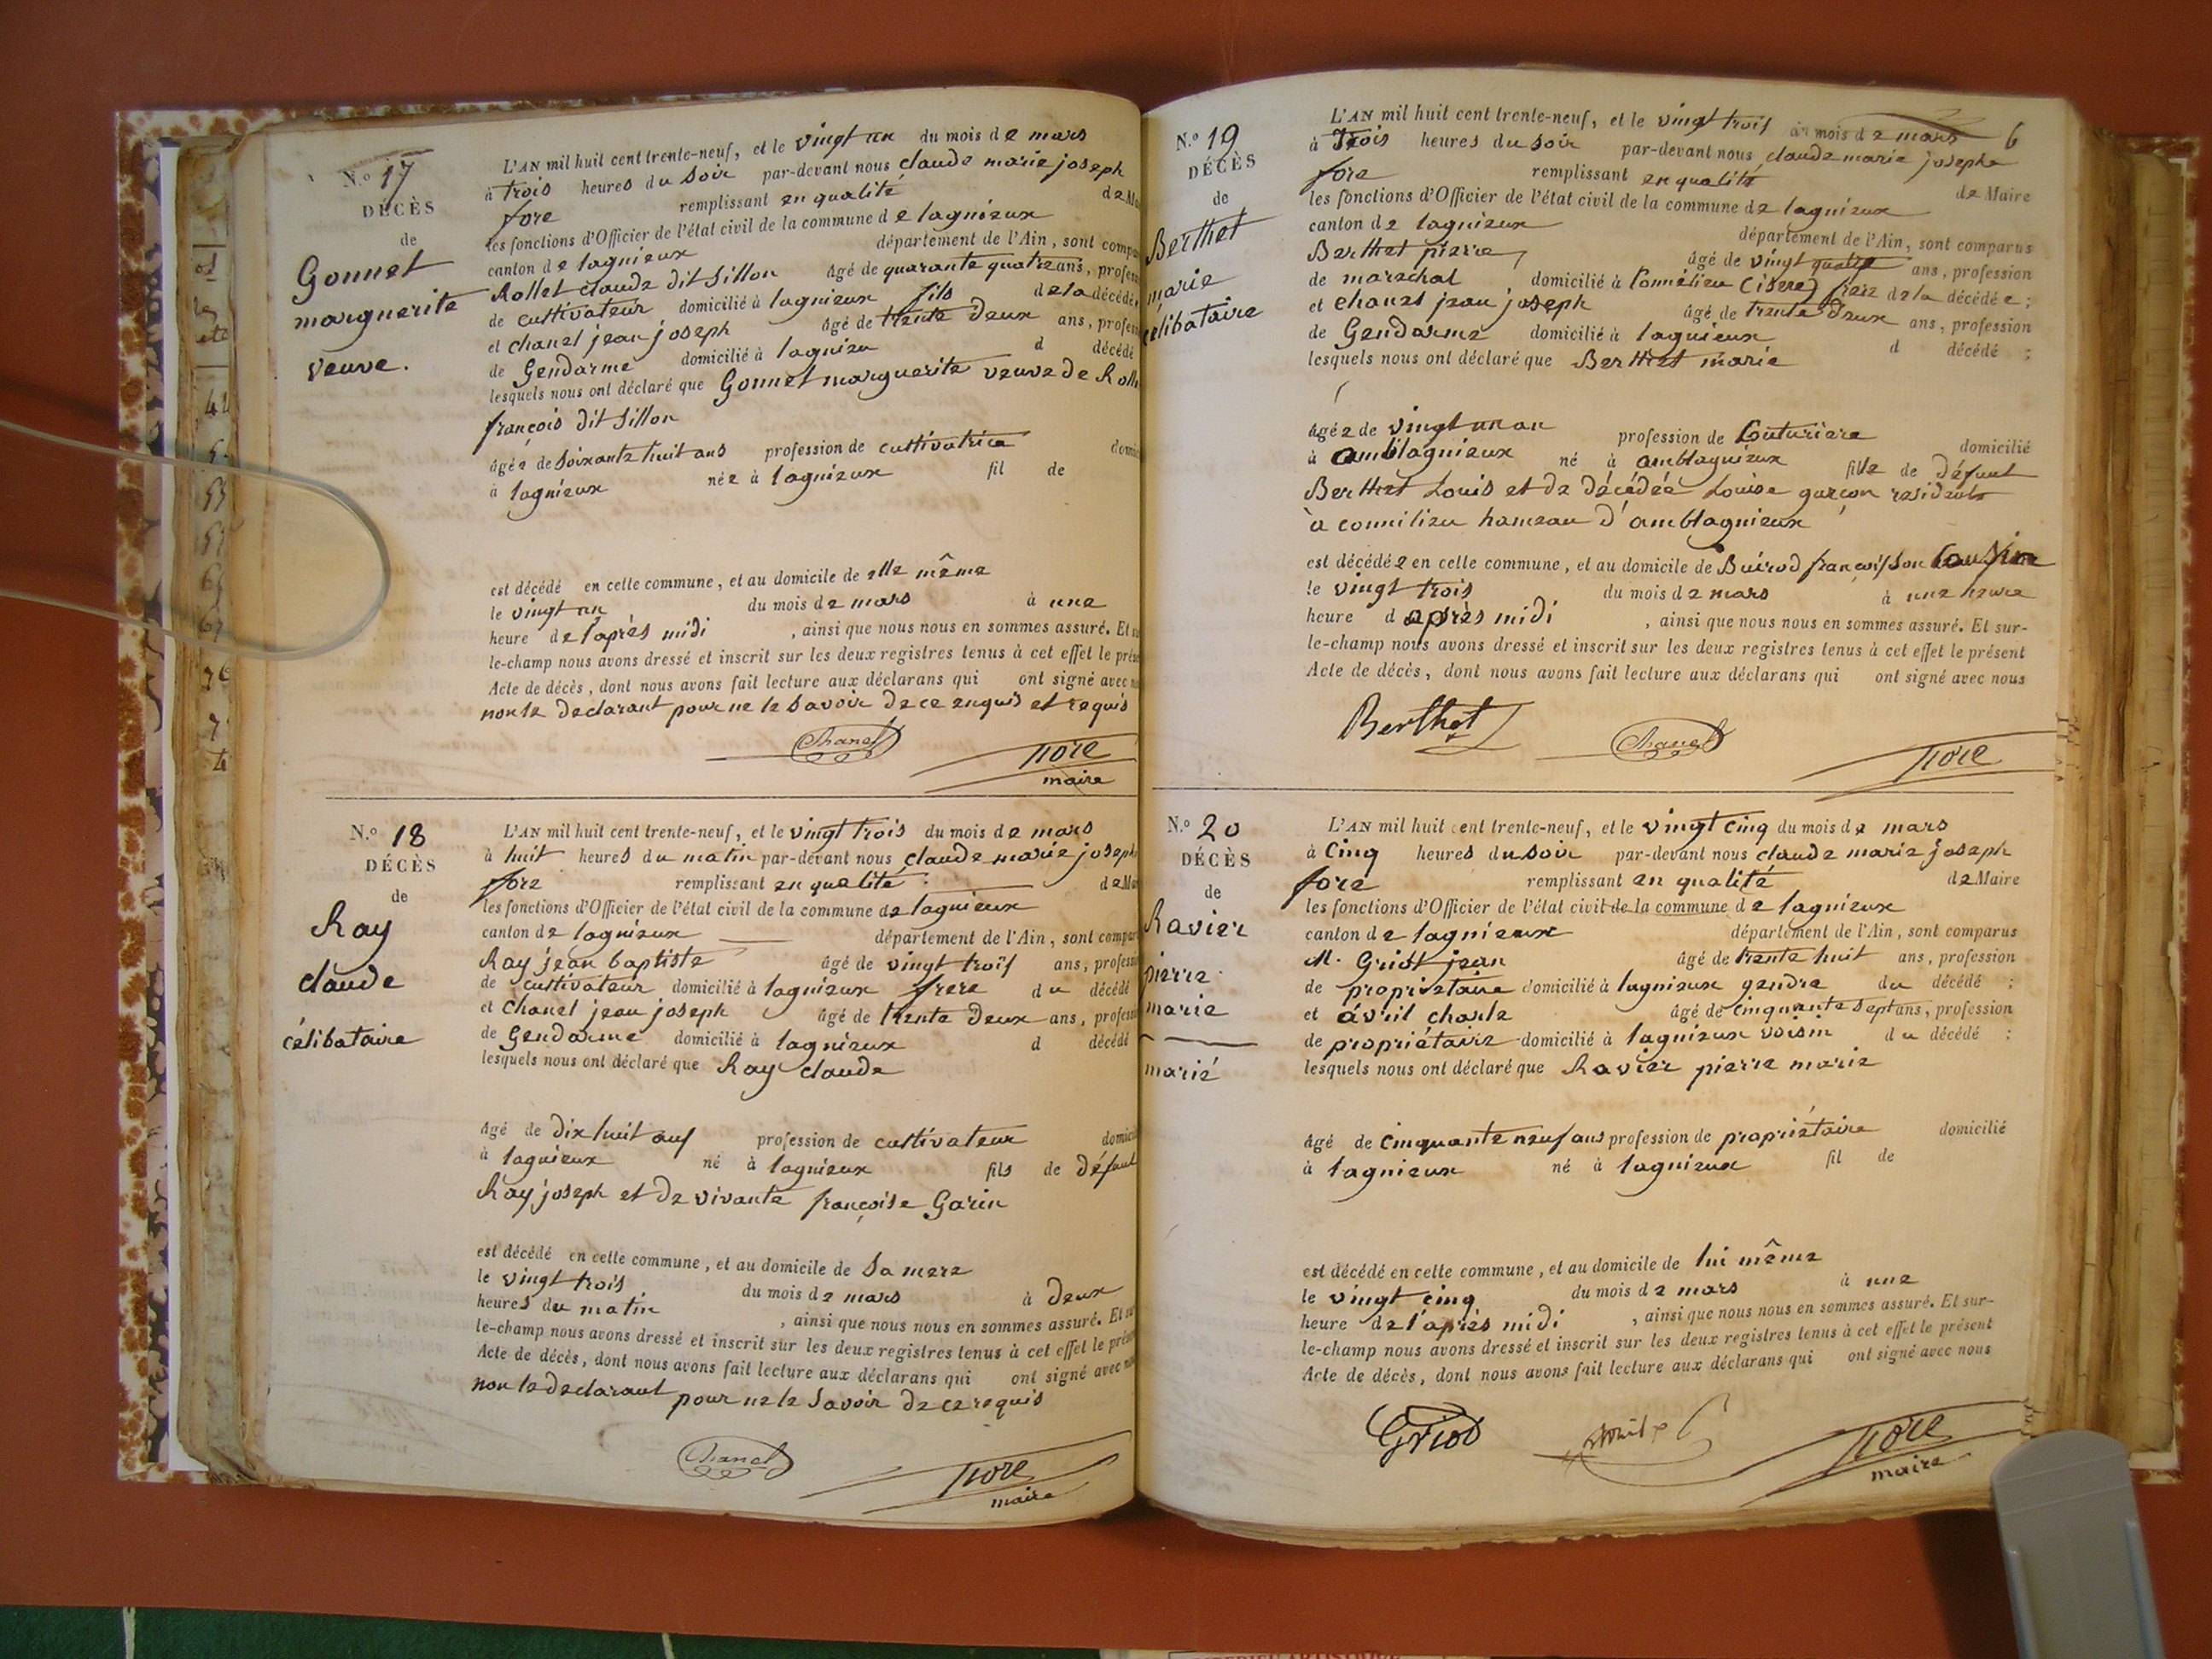 N.o 17
DÉCÈS
de
Gonnet
marguerite
veuve.
L'AN mil huit cent trente-neuf, et le vingt un du mois de mars
à trois heures du soir par-devant nous claude marie joseph
fore remplissant en qualité de
les fonctions d'Officier de l'état civil de la commune de lagnieux
canton de lagnieux département de l'Ain, sont
Rollet claude dit Sillon âgé de quarante quatre ans,
de cultivateur domicilié à lagnieux fils de la décédé
et chanel jean joseph âgé de trente deux ans,
de Gendarme domicilié à lagnieu d décédé
lesquels nous ont déclaré que Gonnet marguerite veuve de
françois dit Sillon
âgée de soixante huit ans profession de cultivatrice
à lagnieux née à lagnieux fil de
est décédé en cette commune, et au domicile de elle même
le vingt un du mois de mars à une
heure de l'après midi, ainsi que nous nous en sommes assuré. Et
le-champ nous avons dressé et inscrit sur les deux registres tenus à cet effet le
Acte de décès, dont nous avons fait lecture aux déclarans qui ont signé avec
non le declarant pour ne le savoir de ce enquis et requis
Chanel
fore
maire
N.o 18
DÉCÈS
de
Ray
claude
célibataire
L'AN mil huit cent trente-neuf, et le vingt trois du mois de mars
à huit heures du matin par-devant nous claude marie joseph
fore remplissant en qualité de
les fonctions d'Officier de l'état civil de la commune de lagnieux
canton de lagnieux département de l'Ain, sont
Ray jean baptiste âgé de vingt trois ans,
de cultivateur domicilié à lagnieux frere du décédé
et Chanel jean joseph âgé de trente deux ans,
de Gendarme domicilié à lagnieux d décédé
lesquels nous ont déclaré que Ray claude
âgé de dix huit ans profession de cultivateur
à lagnieux né à lagnieux fils de défunt
Ray joseph et de vivante françoise Garin
est décédé en cette commune, et au domicile de sa mere
le vingt trois du mois de mars à deux
heures du matin, ainsi que nous nous en sommes assuré. Et
le-champ nous avons dressé et inscrit sur les deux registres tenus à cet effet le
Acte de décès, dont nous avons fait lecture aux déclarans qui ont signé avec
non le declarant pour ne le savoir de ce requis
Chanel
fore
maire
6
N.o 19
DÉCÈS
de
Berthet
marie
célibataire
L'AN mil huit cent trente-neuf, et le vingt trois du mois de mars
à trois heures du soir par-devant nous claude marie josephe
fore remplissant en qualité de Maire
les fonctions d'Officier de l'état civil de la commune de lagnieux
canton de lagnieux département de l'Ain, sont comparus
Berthet pierre âgé de vingt quatre ans, profession
de marechal domicilié à (isere) de la décédée;
et chanel jean joseph âgé de trente deux ans, profession
de Gendarme domicilié à lagnieux d décédé;
lesquels nous ont déclaré que Berthet marie
âgée de vingt un an profession de Couturiere domicilié
à amblagnieux né à amblagnieux fille de défunt
Berthet Louis et de décédée Louise garçon residents
à connilieu hameau d'amblagnieux
est décédée en cette commune, et au domicile de françois son Cousin
le vingt trois du mois de mars à une heure
heure d après midi, ainsi que nous nous en sommes assuré. Et sur-
le-champ nous avons dressé et inscrit sur les deux registres tenus à cet effet le présent
Acte de décès, dont nous avons fait lecture aux déclarans qui ont signé avec nous
Berthet
Chanel
fore
N.o 20
DÉCÈS
de
Ravier
pierre
marie
marié
L'AN mil huit cent trente-neuf, et le vingt cinq du mois de mars
à Cinq heures du soir par-devant nous claude marie joseph
fore remplissant en qualité de Maire
les fonctions d'Officier de l'état civil de la commune de lagnieux
canton de lagnieux département de l'Ain, sont comparus
M. Griot jean âgé de trente huit ans, profession
de proprietaire domicilié à lagnieux gendre du décédé;
et avril charle âgé de cinquante sept ans, profession
de propriétaire domicilié à lagnieux voisin du décédé;
lesquels nous ont déclaré que Ravier pierre marie
âgé de cinquante neuf ans profession de propriétaire domicilié
à lagnieux né à lagnieux fil de
est décédé en cette commune, et au domicile de lui même
le vingt cinq du mois de mars à une
heure de l'après midi, ainsi que nous nous en sommes assuré. Et sur-
le-champ nous avons dressé et inscrit sur les deux registres tenus à cet effet le présent
Acte de décès, dont nous avons fait lecture aux déclarans qui ont signé avec nous
Griot
fore
maire